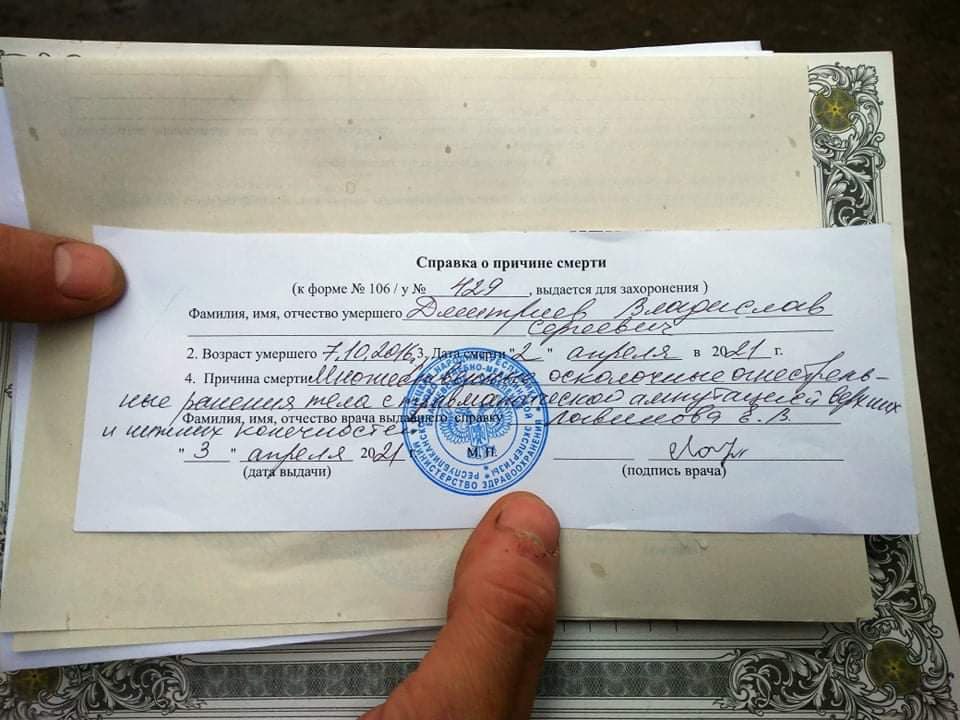 Справка о причине смерти
(к форме № 106 / у № 429, выдается для захоронения )
Фамилия, имя, отчество умершего Дмитриев Владислав
Сергеевич
2. Возраст умершего 7.10.2016 3. Дата смерти "2" апреля в 2021 г.
4. Причина смерти Множественные осколочные огнестрель-
ные ранения тела с травматической ампутацией верхних
Фамилия, имя, отчество врача выдавшего справку Е.В.
и нижних конечностей
"3" апреля 2021 г. М. П.
(дата выдачи) (подпись врача)
МИНИСТЕРСТВО ЗДРАВООХРАНЕНИЯ